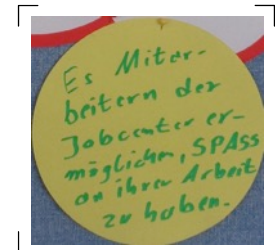 Es Miter-
beitern der
Jobcenter er-
möglichen, SPASS
an ihrer Arbeit
zu haben.